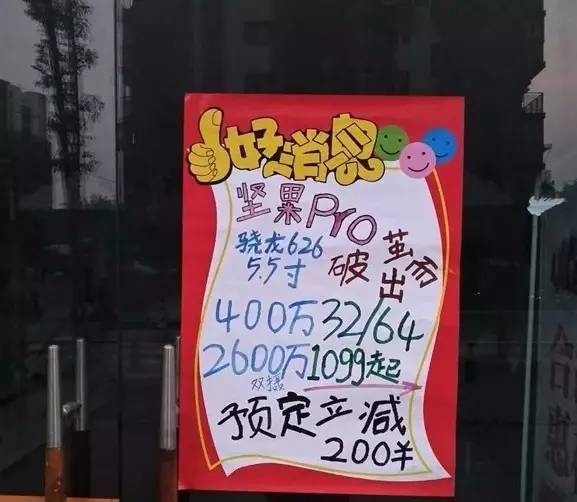 好消息
坚果Pro
骁龙626
5.5寸
破茧而出
400万 32/64
2600万 1099起
双摄
预定立减
200羊